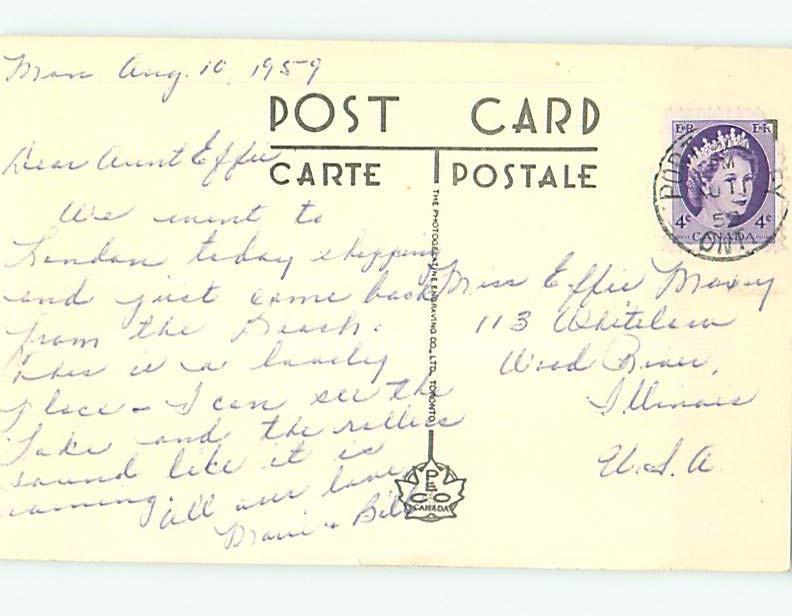 Mon Aug. 10, 1959
POST CARD
CARTE POSTALE
Dear Aunt Effie
We went to
London today shopping
and just come back
from the Beach.
This is a lovely
place - I can see the
Lake and the rollers
sound like it is
raining.
All our love
Marie & Bill
THE PHOTOGELATINE ENGRAVING CO., LTD. TORONTO
PECO
CANADA
EIIR EIIR
4c 4c
CANADA
PORT STANLEY
PM
AU 11
59
ONT.
Miss Effie Maxey
113 Whitelaw
Wood River,
Illinois
U.S.A.